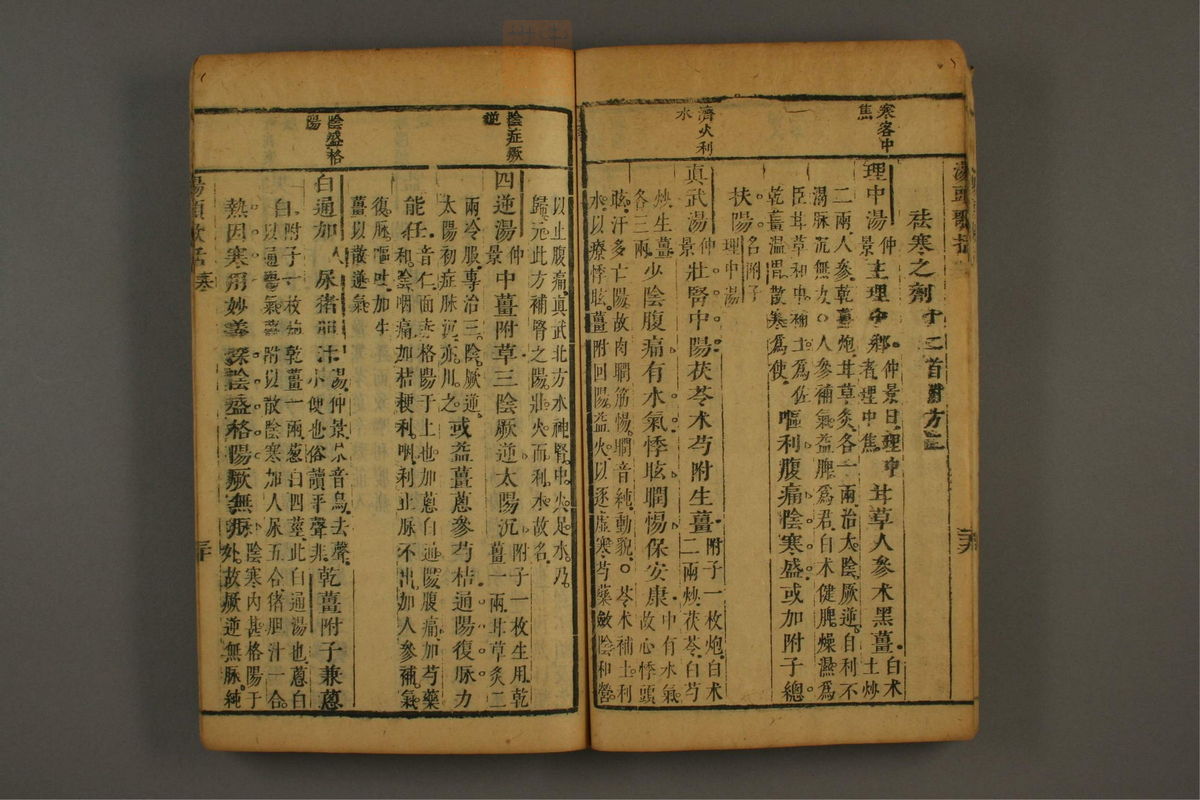 湯頭歌括
祛寒之劑十二首附方二
寒客中
焦
理中湯仲景主理中鄉仲景曰理中者理中焦甘草人參朮黑薑白朮土炒
二兩人參乾薑炮甘草炙各一兩治太陰厥逆自利不
渴脉沉無力〇人參補氣益脾爲君白朮健脾燥濕爲
臣甘草和中補土爲佐
乾薑溫胃散寒爲使嘔利腹痛陰寒盛或加附子總
扶陽名附子理中湯
濟火利
水
真武湯仲景壯腎中陽茯苓朮芍附生薑附子一枚炮白朮二兩炒茯苓白芍
炒生薑各三兩少陰腹痛有水氣悸眩瞤惕保安康中有水氣故心悸頭
眩汗多亡陽故肉瞤筋惕瞤音純動貌〇苓朮補土利
水以療悸眩薑附回陽益火以逐虛寒芍藥斂陰和營
以止腹痛真武北方水神腎中火足水乃
歸元此方補腎之陽壯火而利水故名
陰症厥
逆
四逆湯仲景中薑附草三陰厥逆太陽沉附子一枚生用乾薑一兩甘草炙二
兩冷服專治三陰厥逆
太陽初症脉沉亦用之或益薑蔥參芍桔通陽復脉力
能任音仁面赤格陽于上也加蔥白通陽腹痛加芍藥
和陰咽痛加桔梗利咽利止脉不出加人參補氣
復脉嘔吐加生
薑以散逆氣
陰盛格
陽
白通加人尿猪胆汁湯仲景尿音鳥去聲小便也俗讀平聲非乾薑附子兼蔥
白附子一枚炮乾薑一兩蔥白四莖此白通湯也蔥白
以通陽氣薑附以散陰寒加人尿五合猪胆汁一合
熱因寒用妙義深陰盛格陽厥無脉陰寒内甚格陽于外故厥逆無脉純
湯頭歌括 寒